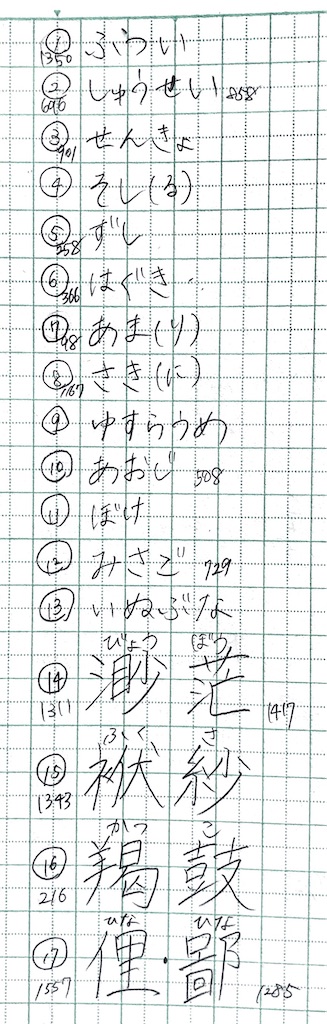 ① ふつい
1350
② しゅうせい 858
690
③ せんきょ
901
④ そし(る)
⑤ ずし
258
⑥ はぐき
366
⑦ あま(り)
98
⑧ さき(に)
1167
⑨ ゆすらうめ
⑩ あおじ 508
⑪ ぼけ
⑫ みさご 729
⑬ いぬぶな
びょう ぼう
⑭ 渺茫
1311 1417
ふく さ
⑮ 袱紗
1343
かつ こ
⑯ 羯鼓
216
ひな ひな
⑰ 俚・鄙
1557 1285